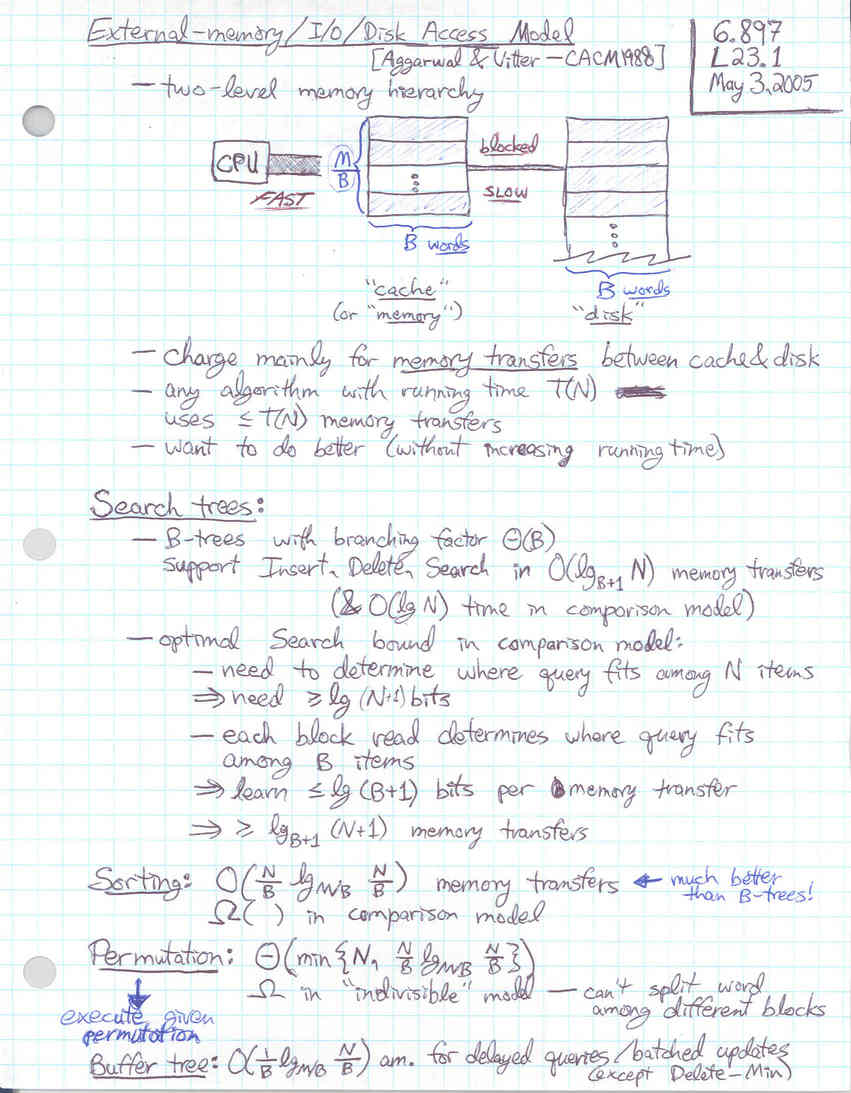 External-memory/I/O/Disk Access Model
[Aggarwal & Vitter — CACM 1988]
6.897
L23.1
May 3, 2005
— two-level memory hierarchy
CPU
FAST
M/B
B words
blocked
SLOW
B words
"cache"
(or "memory")
"disk"
— charge mainly for memory transfers between cache & disk
— any algorithm with running time T(N)
uses ≤ T(N) memory transfers
— want to do better (without increasing running time)
Search trees:
— B-trees with branching factor Θ(B)
support Insert, Delete, Search in O(lg_{B+1} N) memory transfers
(& O(lg N) time in comparison model)
— optimal Search bound in comparison model:
— need to determine where query fits among N items
⇒ need ≥ lg (N+1) bits
— each block read determines where query fits
among B items
⇒ learn ≤ lg (B+1) bits per memory transfer
⇒ ≥ lg_{B+1} (N+1) memory transfers
Sorting: O(N/B lg_{M/B} N/B) memory transfers ← much better
than B-trees!
Ω( ) in comparison model
Permutation: Θ(min{N, N/B lg_{M/B} N/B})
Ω in "indivisible" model — can't split word
among different blocks
↓
execute given
permutation
Buffer tree: O(1/B lg_{M/B} N/B) am. for delayed queries/batched updates
(except Delete-Min)